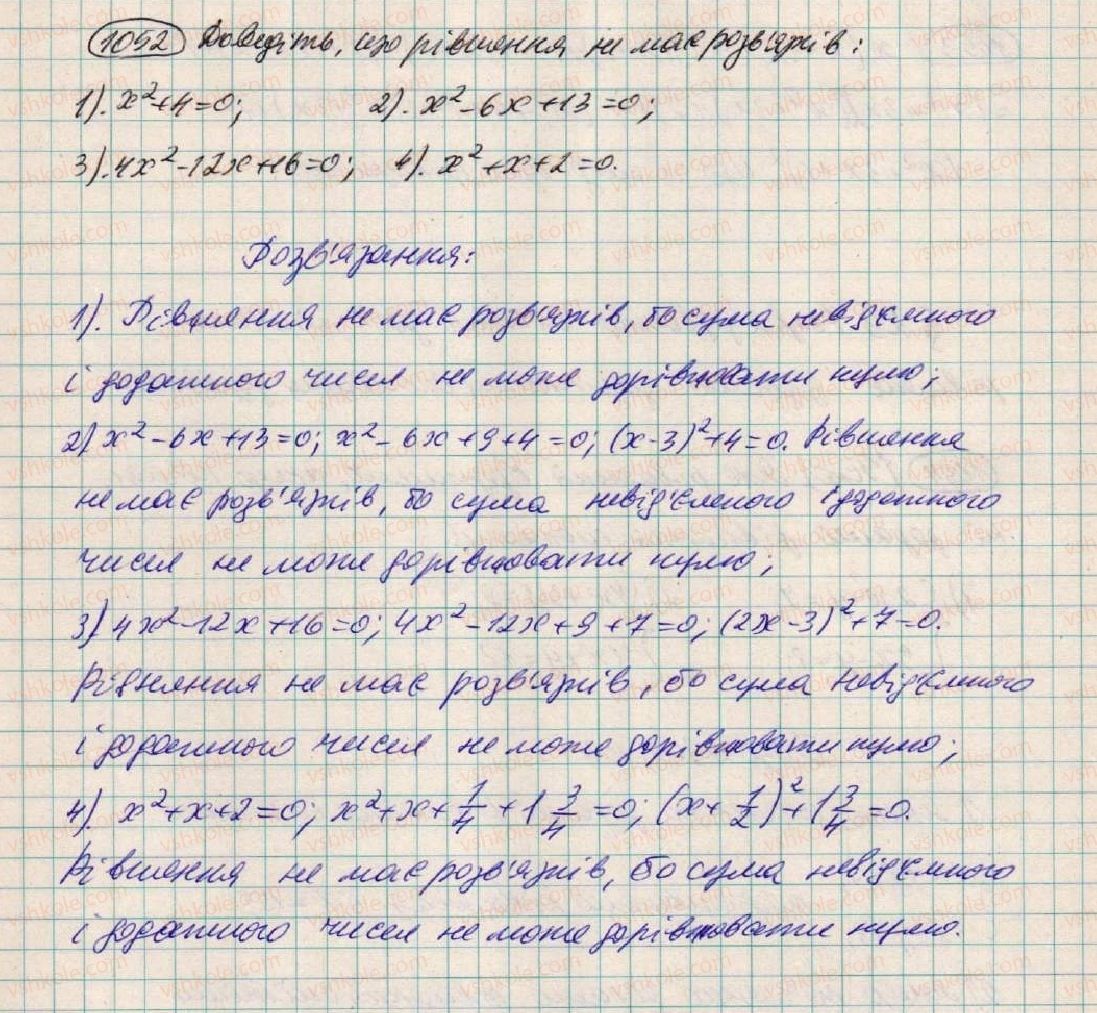 1052 Доведіть, що рівняння не має розв'язків:
1). x²+4=0; 2). x²-6x+13=0;
3). 4x²-12x+16=0; 4). x²+x+2=0.
Розв'язання:
1). Рівняння не має розв'язків, бо сума невід'ємного
і додатного чисел не може дорівнювати нулю;
2) x²-6x+13=0; x²-6x+9+4=0; (x-3)²+4=0. Рівняння
не має розв'язків, бо сума невід'ємного і додатного
чисел не може дорівнювати нулю;
3) 4x²-12x+16=0; 4x²-12x+9+7=0; (2x-3)²+7=0.
Рівняння не має розв'язків, бо сума невід'ємного
і додатного чисел не може дорівнювати нулю;
4). x²+x+2=0; x²+x+1/4+1 3/4=0; (x+1/2)²+1 3/4=0.
Рівняння не має розв'язків, бо сума невід'ємного
і додатного чисел не може дорівнювати нулю.